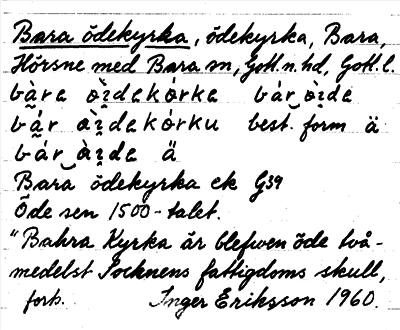 Bara ödekyrka, ödekyrka, Bara,
Hörsne med Bara sn, Gotl. n. hd, Gotl. l.
bą̀ra òi̯dekórka bár‿òi̯de
bą́r ài̯dakórku best. form ä
bár‿ài̯da ä
Bara ödekyrka ek G39
Öde sen 1500-talet.
"Bahra Kyrka är blefwen öde två-
medelst Socknens fattigdoms skull,
forts. Inger Eriksson 1960.